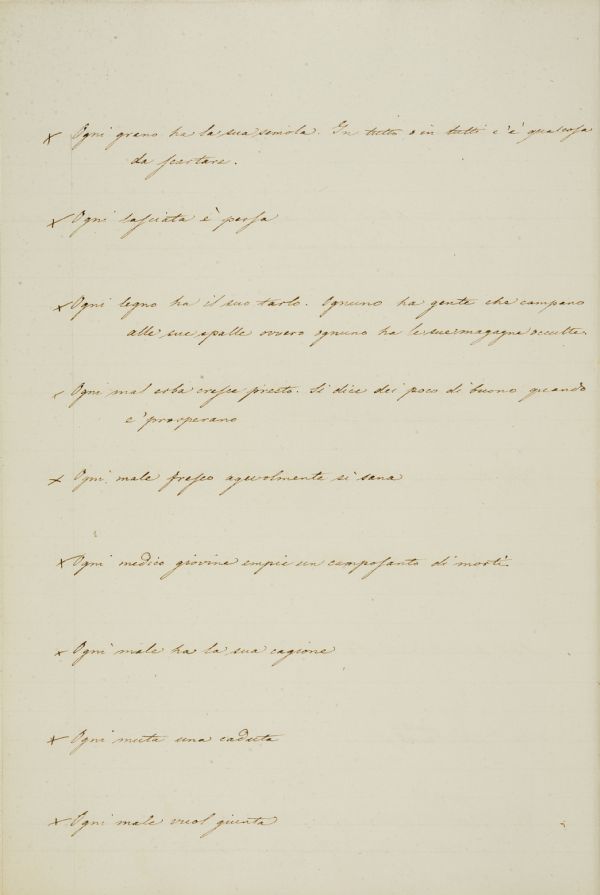 x Ogni grano ha la sua semola. In tutto o in tutti c'è qualcosa
da scartare.
x Ogni lasciata è persa
x Ogni legno ha il suo tarlo. Ognuno ha gente che campano
alle sue spalle ovvero ognuno ha le sue magagne occulte.
Ogni mal erba cresce presto. Si dice dei poco di buono quando
e' prosperano
x Ogni male fresco agevolmente si sana
x Ogni medico giovine empie un camposanto di morti.
x Ogni male ha la sua cagione
x Ogni muta una caduta
x Ogni male vuol giunta